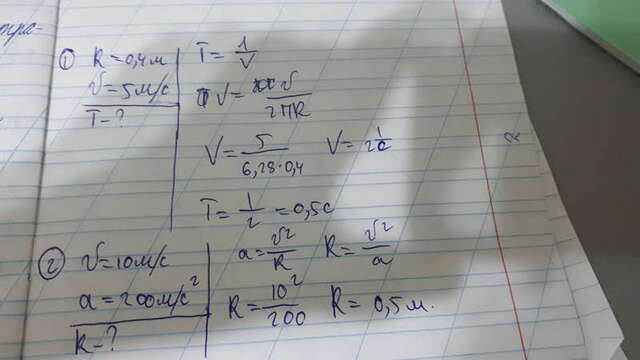 ① R = 0,4 м
υ = 5 м/с
T - ?
T = 1/ν
ν = υ/2πR
ν = 5/6,28·0,4 ν = 2 1/с
T = 1/2 = 0,5 с
② υ = 10 м/с
a = 200 м/с²
R - ?
a = υ²/R R = υ²/a
R = 10²/200 R = 0,5 м.